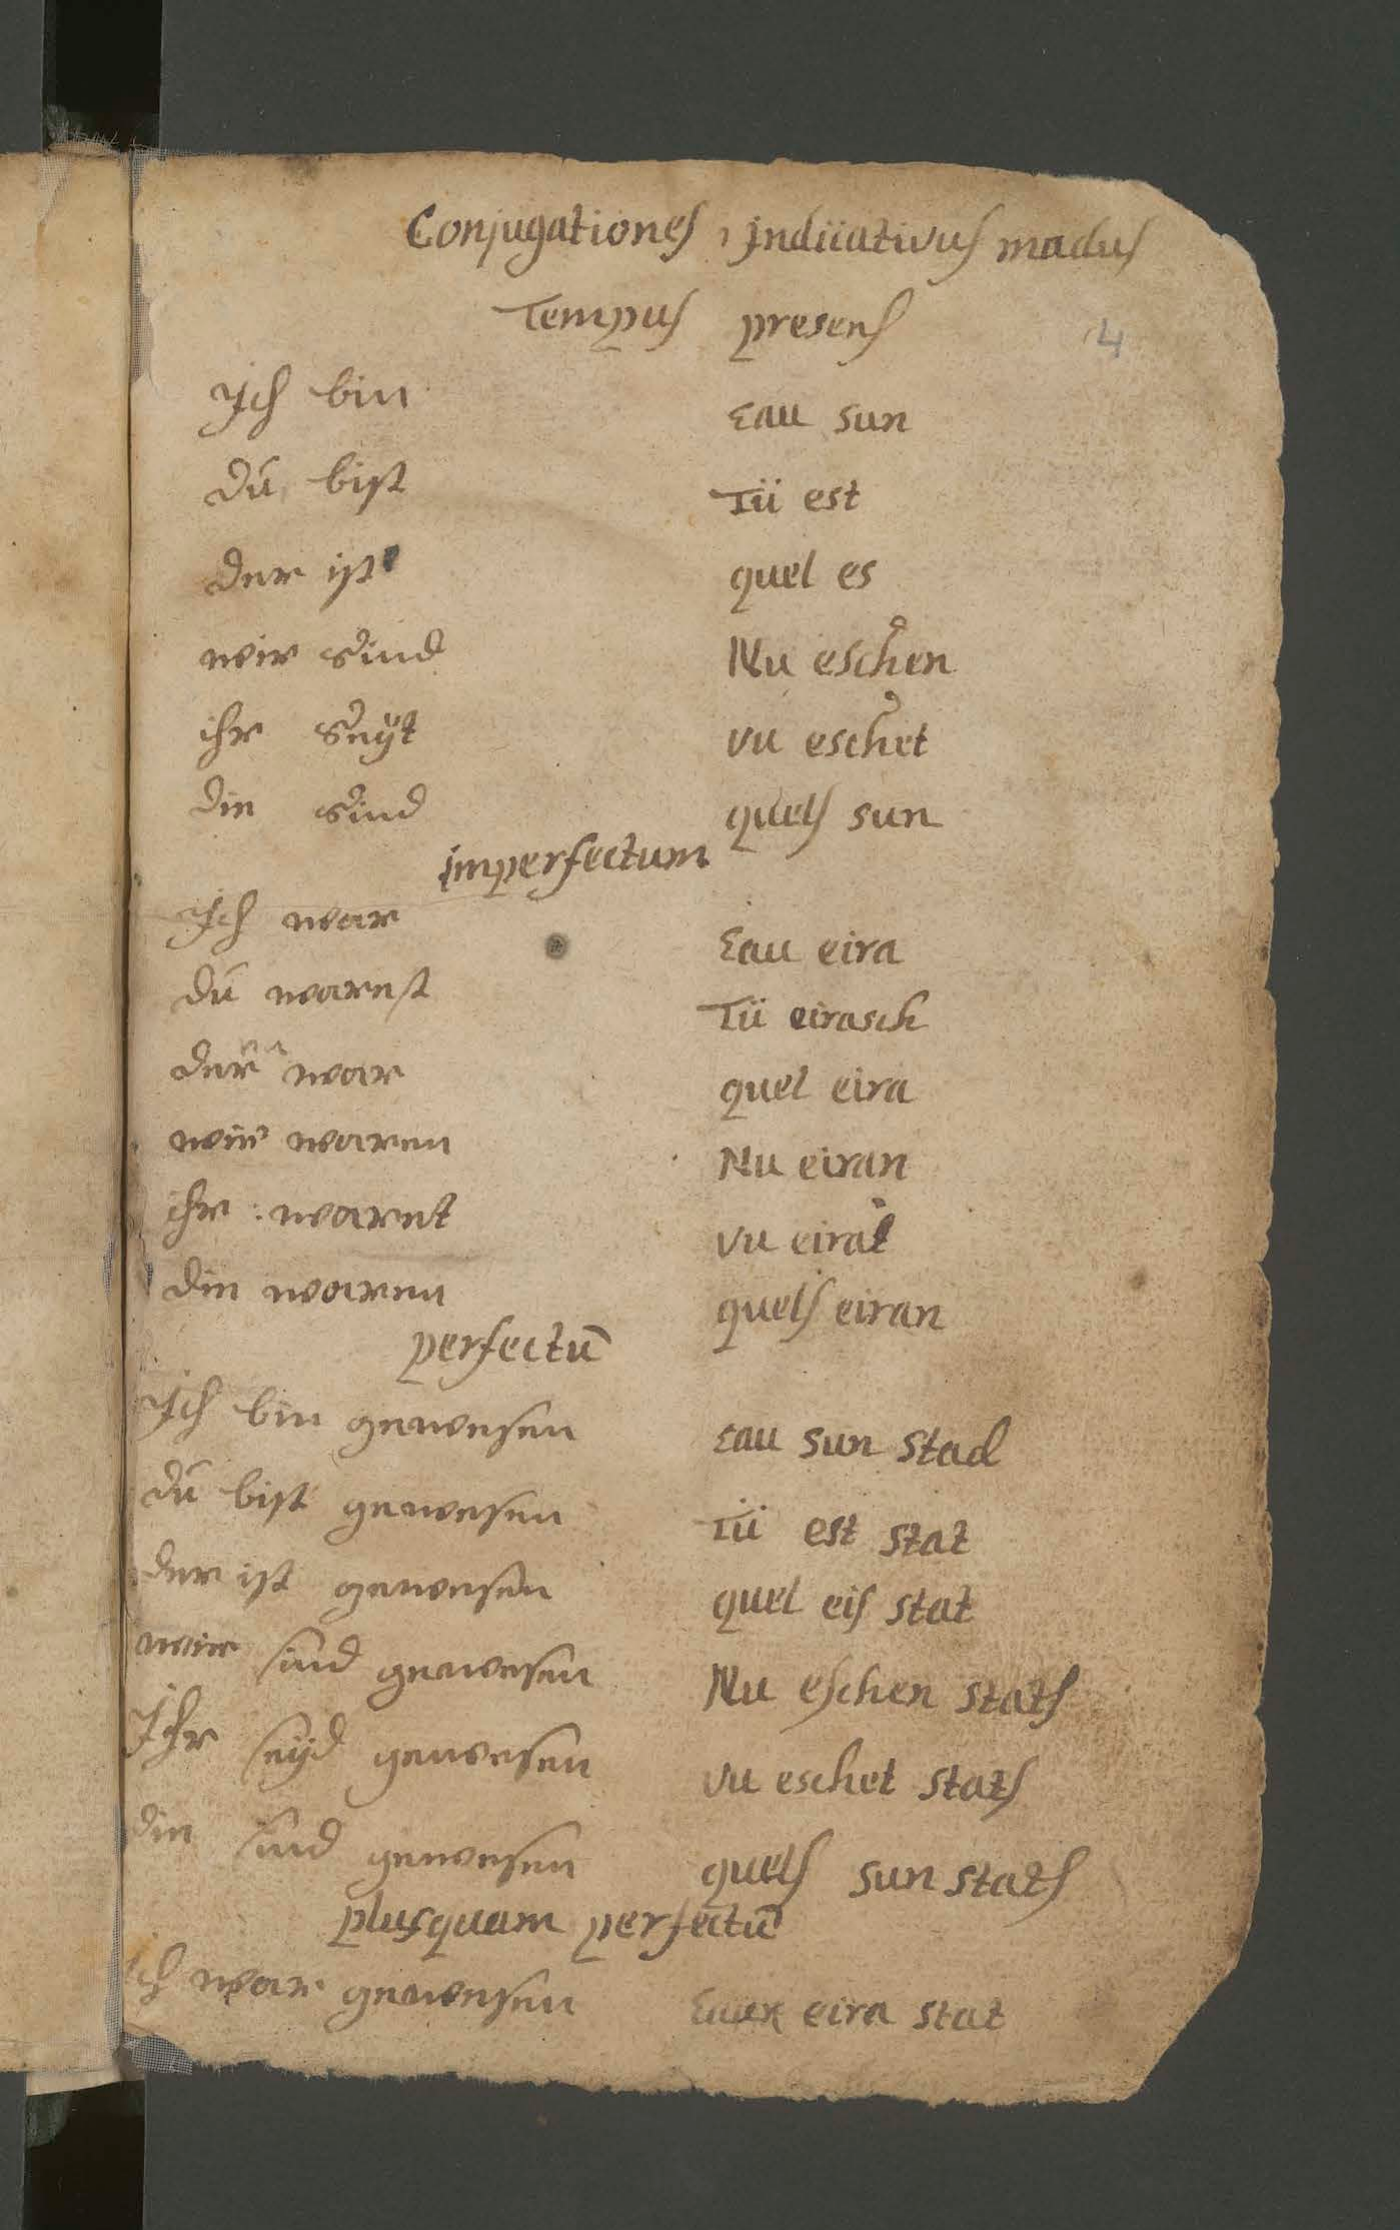 Conjugationes, Indicativus madus
Tempus presens
4
Ich bin
Eau sun
Dŭ bist
Tü est
Der ist
quel es
wir sind
Nu eschen
ihr seÿt
vu eschet
die sind
quels sun
imperfectum
Ich war
Eau eira
Dŭ warest
Tü eirasch
Der war
quel eira
wir waren
Nu eiran
ihr waret
vu eirat
die waren
quels eiran
perfectū
Ich bin gewesen
Eau sun stad
Dŭ bist gewesen
Tü est stat
Der ist gewesen
quel eis stat
wir sind gewesen
Nu eschen stats
Ihr seÿd gewesen
vu eschet stats
die sind gewesen
quels sun stats
plusquam perfectū
ich war gewesen
eira stat